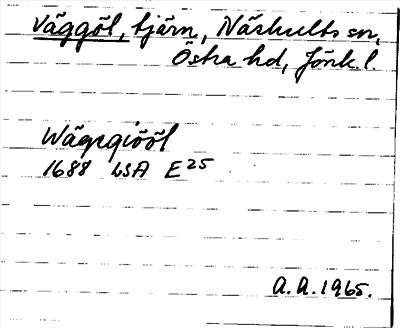 Väggöl, tjärn, Närhults sn,
Östra hd, Jönk. l.
Wägegiööl
1688 LSA E25
A.A. 1965.